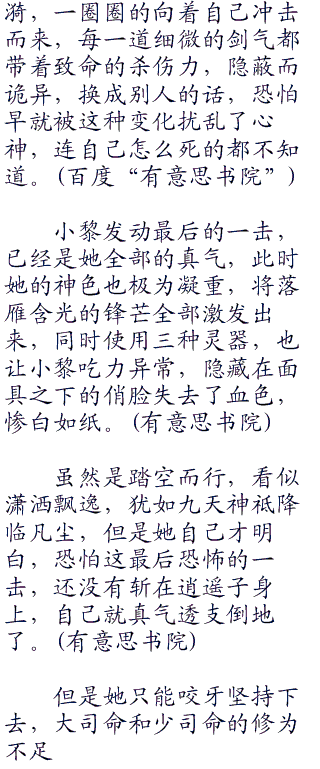 漪，一圈圈的向着自己冲击
而来，每一道细微的剑气都
带着致命的杀伤力，隐蔽而
诡异，换成别人的话，恐怕
早就被这种变化扰乱了心
神，连自己怎么死的都不知
道。(百度“有意思书院”)
小黎发动最后的一击，
已经是她全部的真气，此时
她的神色也极为凝重，将落
雁含光的锋芒全部激发出
来，同时使用三种灵器，也
让小黎吃力异常，隐藏在面
具之下的俏脸失去了血色，
惨白如纸。(有意思书院)
虽然是踏空而行，看似
潇洒飘逸，犹如九天神祇降
临凡尘，但是她自己才明
白，恐怕这最后恐怖的一
击，还没有斩在逍遥子身
上，自己就真气透支倒地
了。(有意思书院)
但是她只能咬牙坚持下
去，大司命和少司命的修为
不足